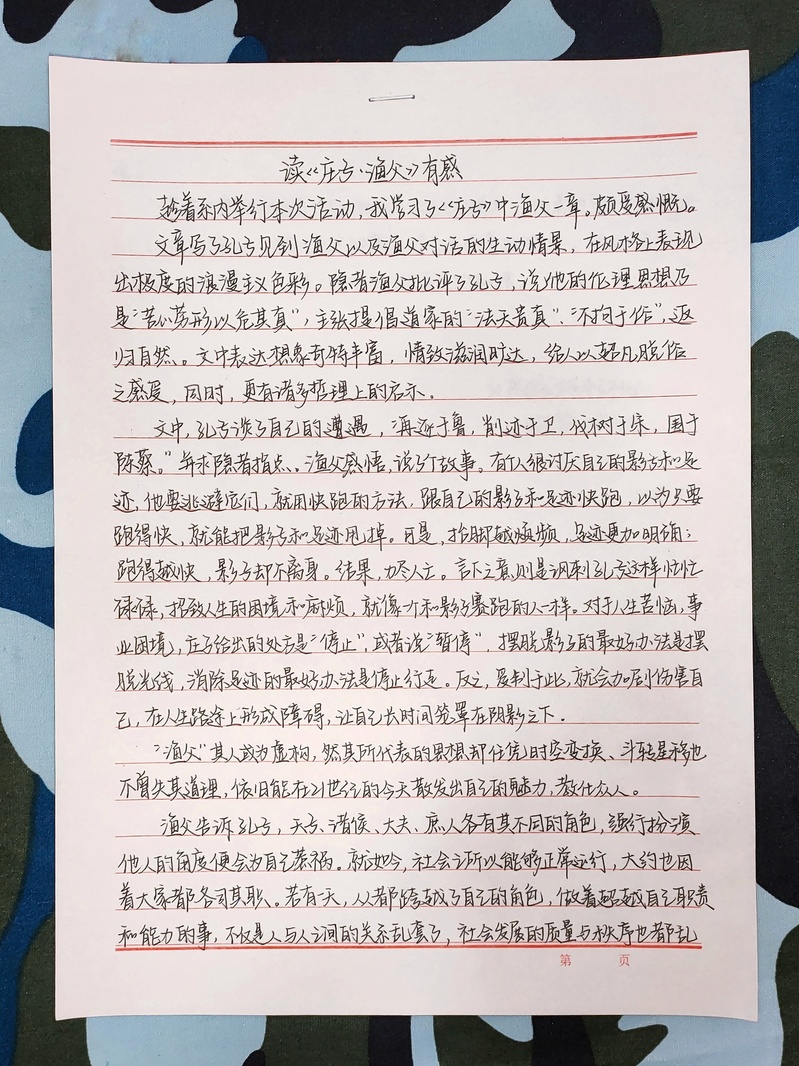 读《庄子·渔父》有感
趁着系内举行本次活动，我学习了《庄子》中渔父一章。颇受感慨。
文章写了孔子见到渔父以及渔父对话的生动情景，在风格上表现
出极度的浪漫主义色彩。隐者渔父批评了孔子，说他的伦理思想乃
是“苦心劳形以危其真”，主张提倡道家的“法天贵真”、“不拘于俗”，返
归自然、。文中表达想象奇特丰富，情致滋润旷达，给人以超凡脱俗
之感受，同时，更有诸多哲理上的启示。
文中，孔子谈了自己的遭遇，“再逐于鲁，削迹于卫，伐树于宋，围于
陈蔡。”并求隐者指点、。渔父感悟，说了个故事。有个人很讨厌自己的影子和足
迹，他要逃避它们，就用快跑的方法，跟自己的影子和足迹快跑，以为只要
跑得快，就能把影子和足迹甩掉。可是，抬脚越频频，足迹更加明确；
跑得越快，影子却不离身。结果，力尽人亡。言下之意，则是讽刺孔子这样忙忙
碌碌，招致人生的困境和麻烦，就像一个和影子赛跑的人一样。对于人生苦恼，事
业困境，庄子给出的处方是“停止”，或者说“暂停”，摆脱影子的最好办法是摆
脱光线，消除足迹的最好办法是停止行走。反之，受制于此，就会加剧伤害自
己，在人生路途上形成障碍，让自己长时间笼罩在阴影之下。
“渔父”其人或为虚构，然其所代表的思想却任凭时空变换、斗转星移也
不曾失其道理，依旧能在21世纪的今天散发出自己的魅力，教化众人。
渔父告诉孔子，天子、诸侯、大夫、庶人各有其不同的角色，强行扮演
他人的角度便会为自己惹祸。就如今，社会之所以能够正常运行，大约也因
着大家都各司其职。若有一天，人人都跨越了自己的角色，做着超越自己职责
和能力的事，不仅是人与人之间的关系乱套了，社会发展的质量与秩序也都乱
第 页